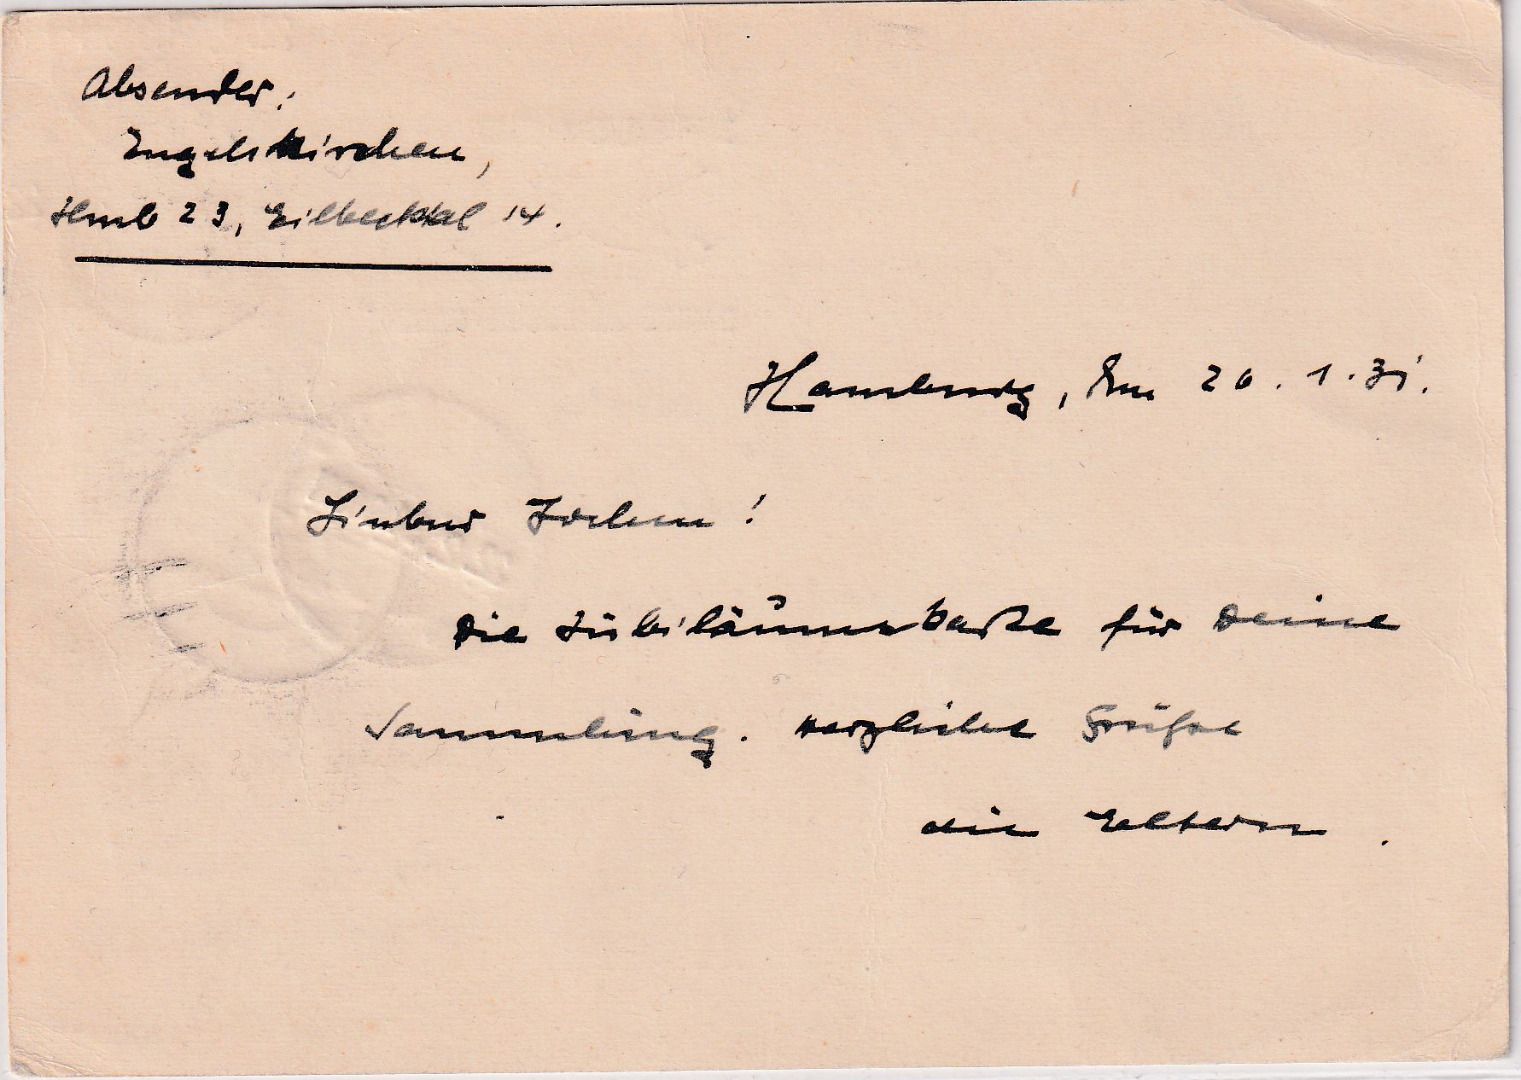 Absender:
Engelskirchen,
Hmb 23, Eilbecktal 14.
Hamburg, den 20.1.31.
Lieber Jochen!
Die Jubiläumskarte für Deine
Sammlung. Herzliche Grüße
die Eltern.